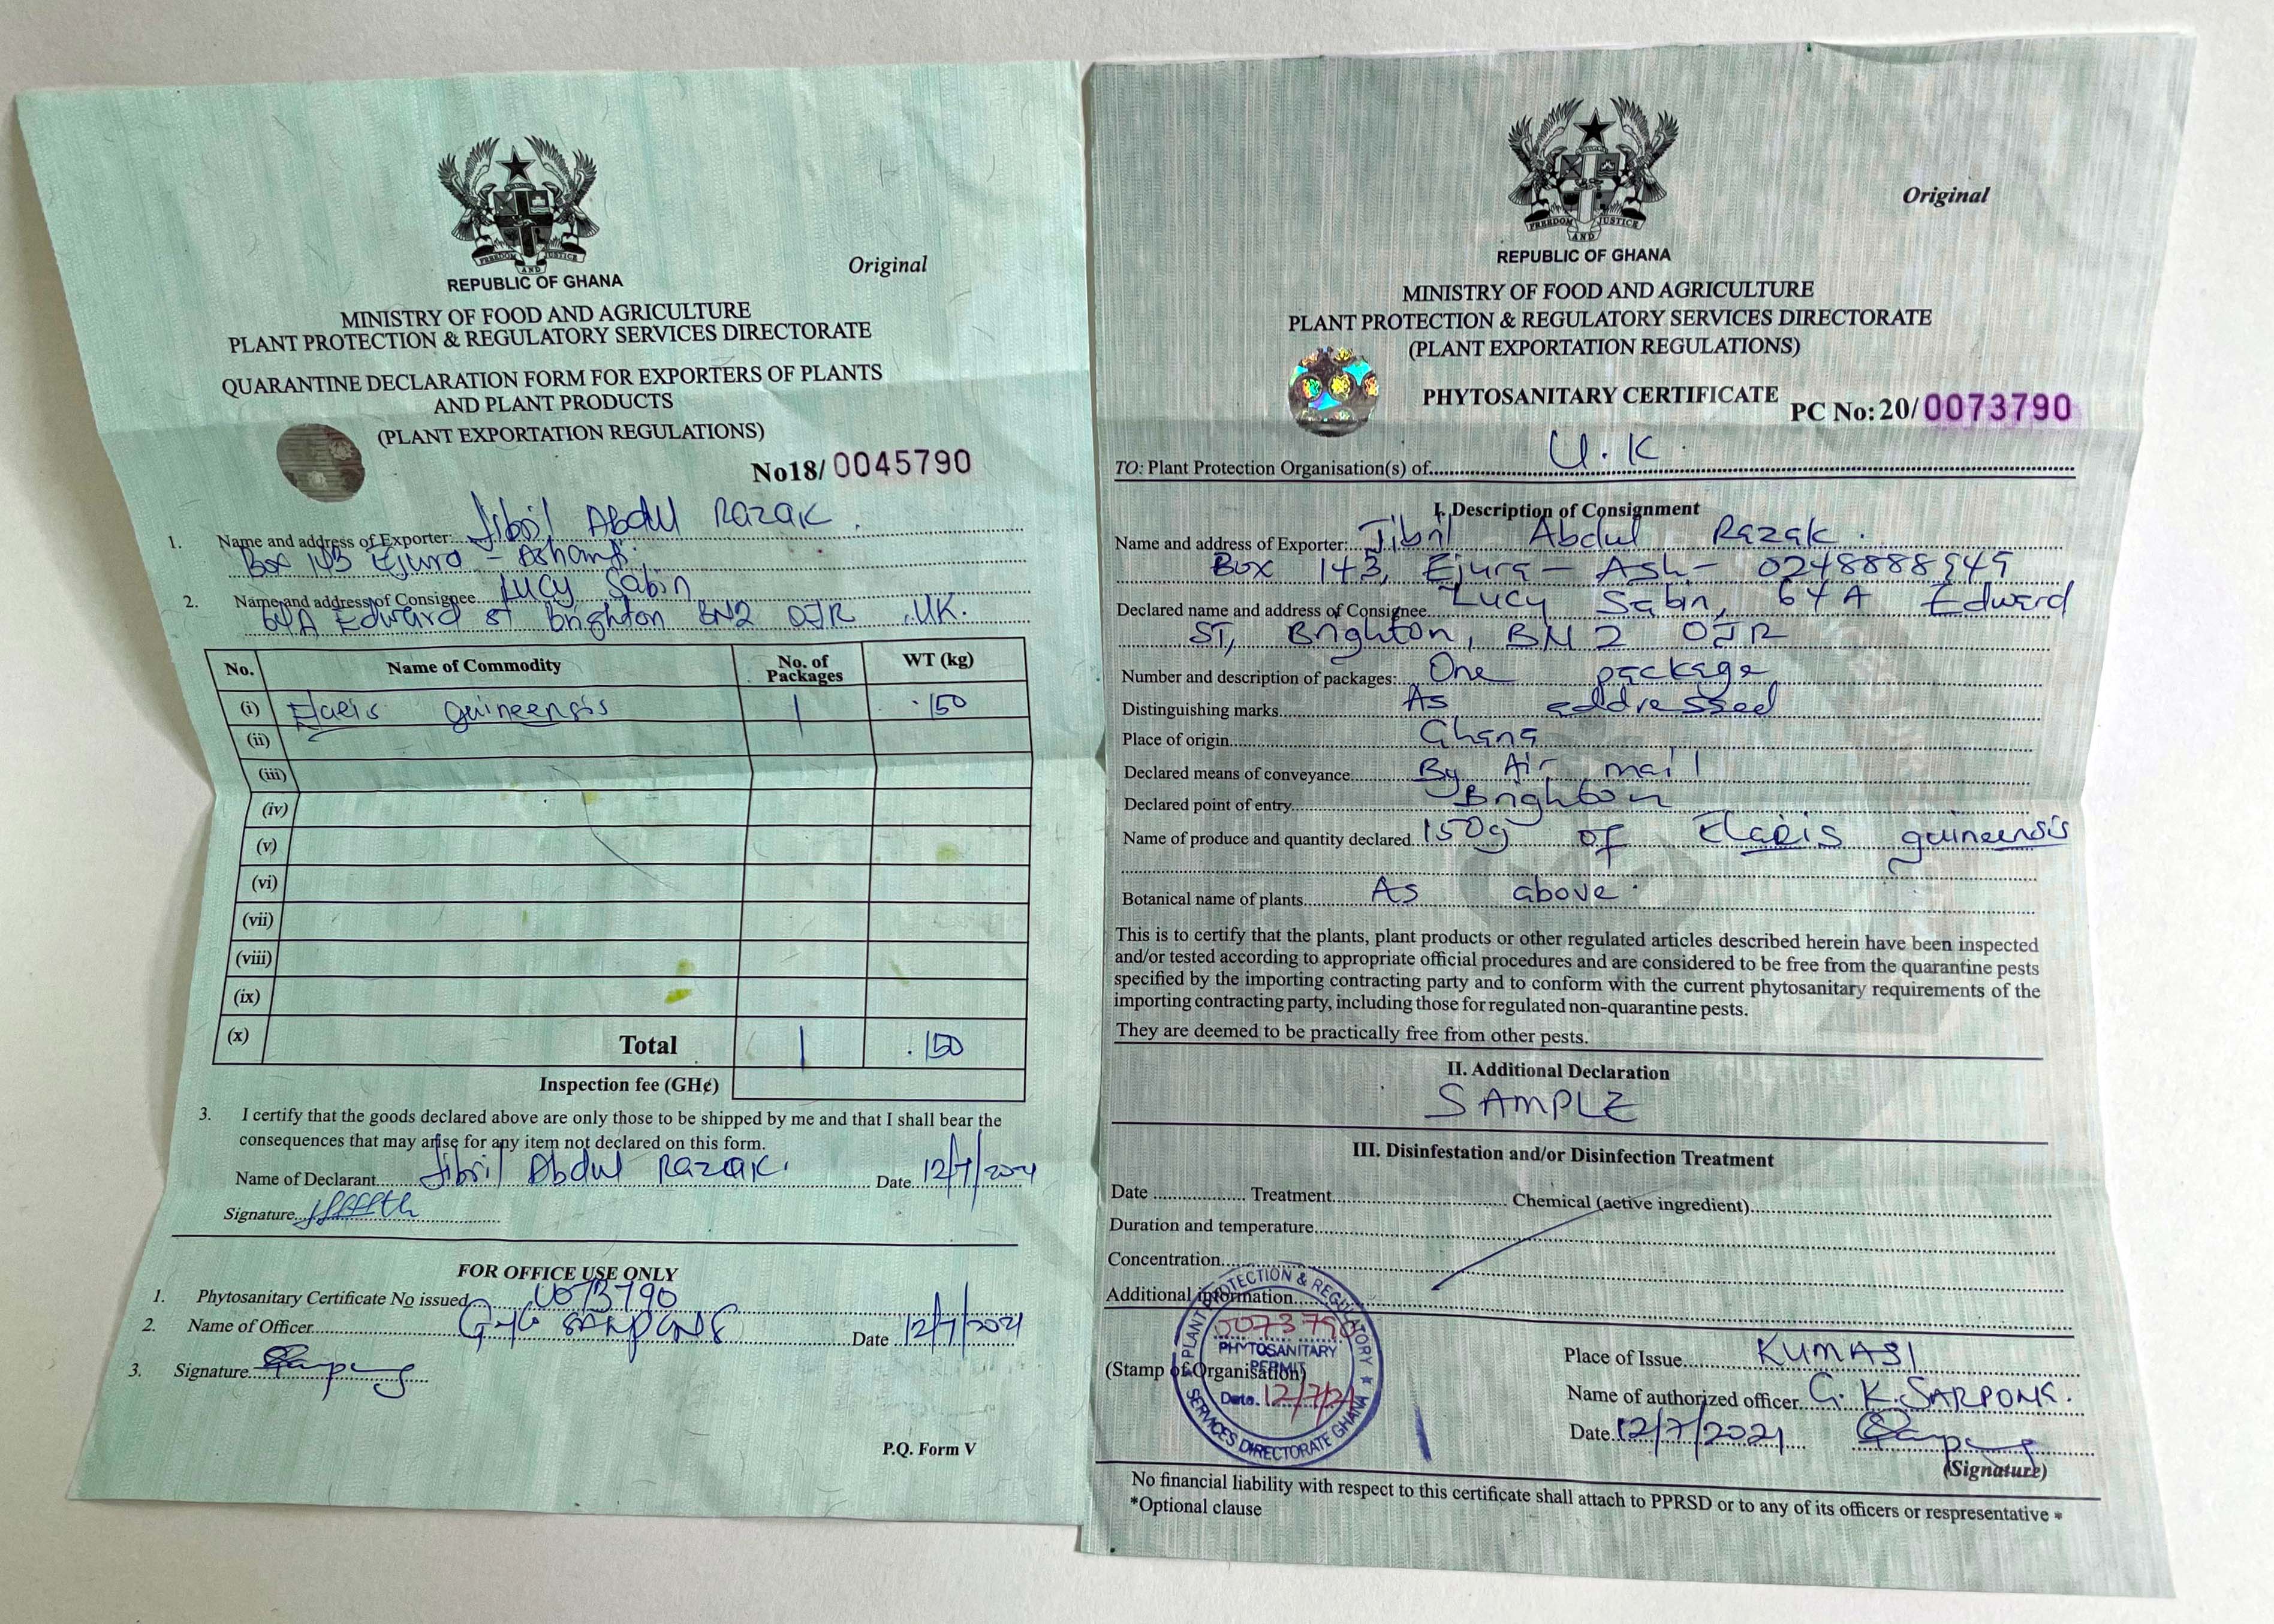 FREEDOM AND JUSTICE
REPUBLIC OF GHANA
Original
MINISTRY OF FOOD AND AGRICULTURE
PLANT PROTECTION & REGULATORY SERVICES DIRECTORATE
QUARANTINE DECLARATION FORM FOR EXPORTERS OF PLANTS
AND PLANT PRODUCTS
(PLANT EXPORTATION REGULATIONS)
No18/ 0045790
1. Name and address of Exporter: Jibril Abdul Razak.
Box 143 Ejura - Ashanti.
2. Name and address of Consignee Lucy Sabin
64A Edward St Brighton BN2 0JR .UK.
No. Name of Commodity No. of Packages WT (kg)
(i) Elaeis guineensis 1 .150
(ii)
(iii)
(iv)
(v)
(vi)
(vii)
(viii)
(ix)
(x) Total 1 .150
Inspection fee (GH¢)
3. I certify that the goods declared above are only those to be shipped by me and that I shall bear the
consequences that may arise for any item not declared on this form.
Name of Declarant Jibril Abdul Razak. Date 12/7/2021
Signature
FOR OFFICE USE ONLY
1. Phytosanitary Certificate No issued 0073790
2. Name of Officer Date 12/7/2021
3. Signature
P.Q. Form V
FREEDOM AND JUSTICE
REPUBLIC OF GHANA
Original
MINISTRY OF FOOD AND AGRICULTURE
PLANT PROTECTION & REGULATORY SERVICES DIRECTORATE
(PLANT EXPORTATION REGULATIONS)
PHYTOSANITARY CERTIFICATE PC No: 20/ 0073790
TO: Plant Protection Organisation(s) of U.K.
I. Description of Consignment
Name and address of Exporter: Jibril Abdul Razak.
Box 143, Ejura - Ash - 0248888949
Declared name and address of Consignee Lucy Sabin, 64A Edward
ST, Brighton, BN2 0JR
Number and description of packages: One package
Distinguishing marks As addressed
Place of origin Ghana
Declared means of conveyance By Air mail
Declared point of entry Brighton
Name of produce and quantity declared 150g of Elaeis guineensis
Botanical name of plants As above.
This is to certify that the plants, plant products or other regulated articles described herein have been inspected
and/or tested according to appropriate official procedures and are considered to be free from the quarantine pests
specified by the importing contracting party and to conform with the current phytosanitary requirements of the
importing contracting party, including those for regulated non-quarantine pests.
They are deemed to be practically free from other pests.
II. Additional Declaration
SAMPLE
III. Disinfestation and/or Disinfection Treatment
Date Treatment Chemical (active ingredient)
Duration and temperature
Concentration
Additional information
PLANT PROTECTION & REGULATORY SERVICES DIRECTORATE GHANA
0073790
PHYTOSANITARY
PERMIT
Date. 12/7/21
(Stamp of Organisation)
Place of Issue KUMASI
Name of authorized officer G. K. SARPONG.
Date 12/7/2021
(Signature)
No financial liability with respect to this certificate shall attach to PPRSD or to any of its officers or respresentative *
*Optional clause